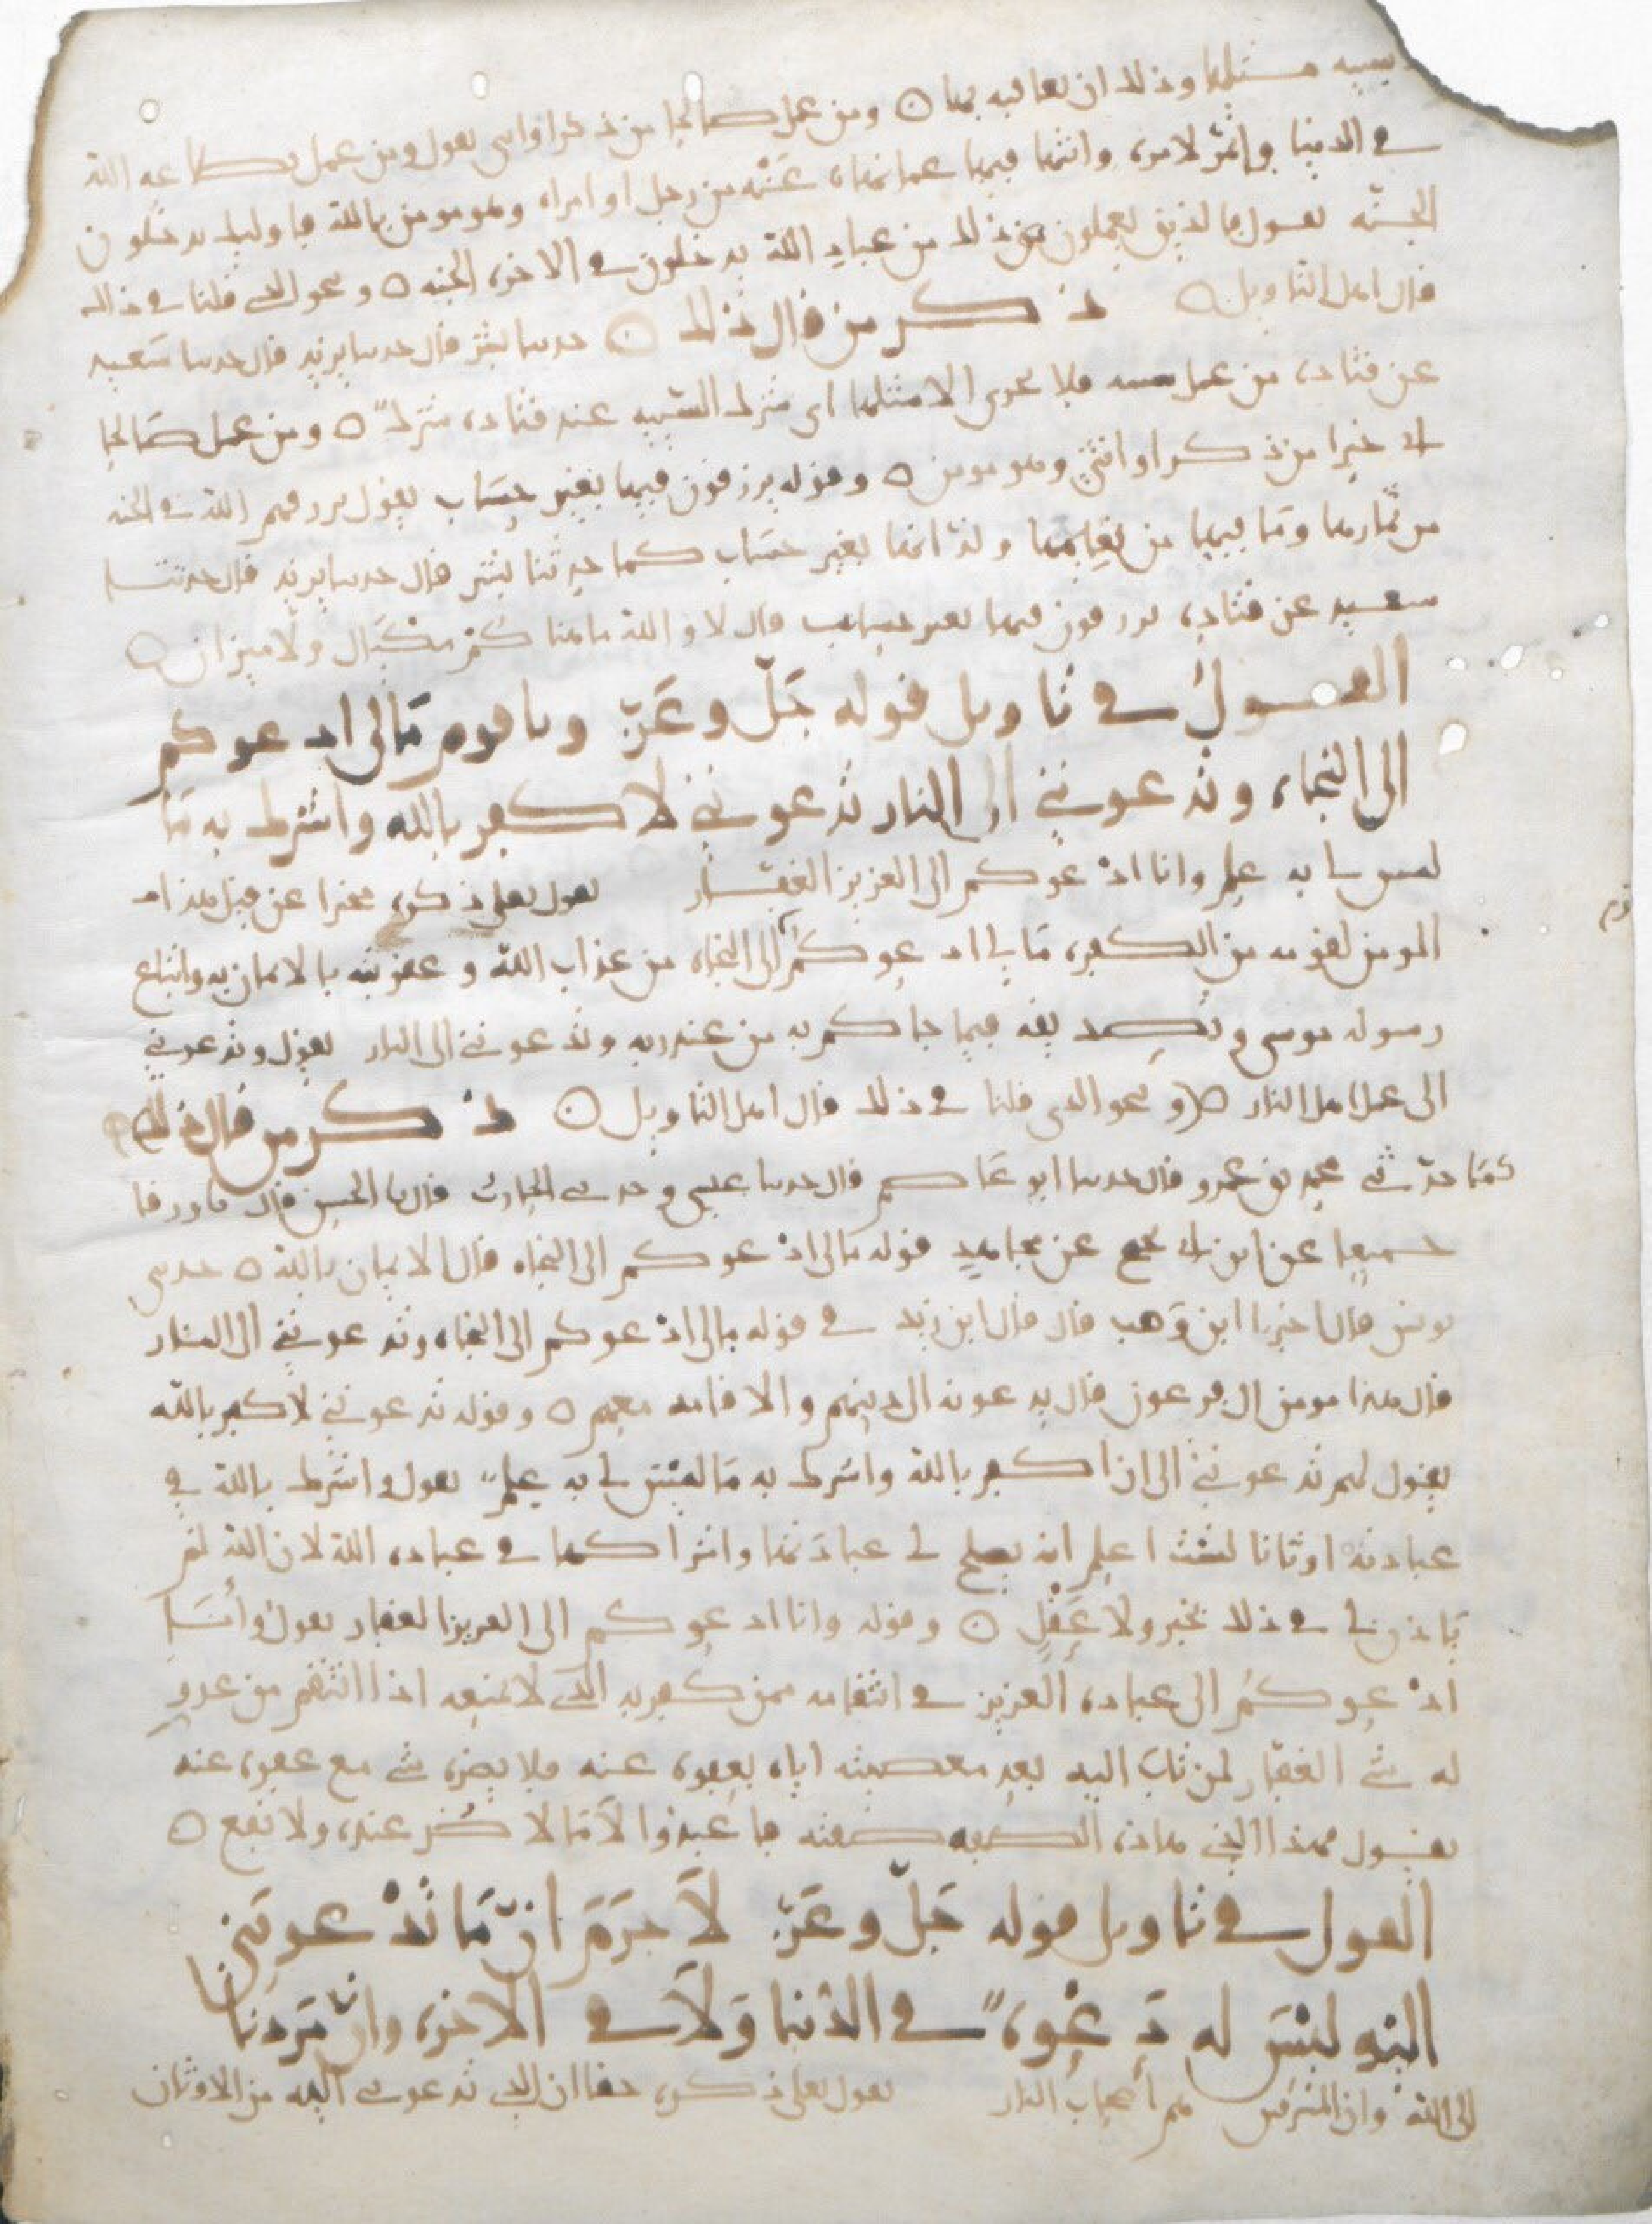 سيئة مثلها وذلك ان يعاقبه بها ومن عمل صالحا من ذكر او انثى يقول ومن عمل بطاعة الله
في الدنيا وائتمر لامره وانتهى فيها عما نهاه عنه من رجل او امراة وهو مومن بالله فاوليك يدخلون
الجنة يقول فالذين يعملون ذلك من عباد الله يدخلون في الاخرة الجنة وبنحو الذي قلنا في ذلك
قال اهل التاويل ذكر من قال ذلك حدثنا بشر قال حدثنا يزيد قال حدثنا سعيد
عن قتادة من عمل سيئة فلا يجزى الا مثلها اي شركا السيئة عند قتادة شرك ومن عمل صالحا
اي خيرا من ذكر او انثى وهو مومن وقوله يرزقون فيها بغير حساب يقول يرزقهم الله في الجنة
من ثمارها وما فيها من نعيمها ولذاتها بغير حساب كما حدثنا بشر قال حدثنا يزيد قال حدثنا
سعيد عن قتادة يرزقون فيها بغير حساب قال لا والله ما هناكم مكيال ولا ميزان
القول في تاويل قوله جل وعز ويا قوم مالي ادعوكم
الى النجاة وتدعونني الى النار تدعونني لاكفر بالله واشرك به ما
ليس لي به علم وانا ادعوكم الى العزيز الغفار يقول تعلى ذكره مخبرا عن قيل هذا
المومن لقومه من الكفرة مالي ادعوكم الى النجاة من عذاب الله وعقوبته بالايمان به واتباع
رسوله موسى وتصديقه فيما جاكم به من عند ربه وتدعونني الى النار يقول وتدعونني
الى عمل اهل النار وبنحو الذي قلنا في ذلك قال اهل التاويل ذكر من قال ذلك
كما حدثني محمد بن عمرو قال حدثنا ابو عاصم قال حدثنا عيسى وحدثني الحارث قال نا الحسن قال نا ورقا
جميعا عن ابن ابي نجيح عن مجاهد قوله مالي ادعوكم الى النجاة قال الايمان بالله حدثني
يونس قال اخبرنا ابن وهب قال قال ابن زيد في قوله مالي ادعوكم الى النجاة وتدعونني الى النار
قال هذا مومن ال فرعون قال يدعونه الى دينهم والاقامة معهم وقوله تدعونني لاكفر بالله
يقول لهم تدعونني الى ان اكفر بالله واشرك به ما ليس لي به علم يقول واشرك بالله في
عبادته اوثانا لست اعلم انه يصلح لي عبادتها واشراكها في عبادة الله لان الله لم
ياذن لي في ذلك بخبر ولا عقل وقوله وانا ادعوكم الى العزيز الغفار يقول وانا
ادعوكم الى عبادة العزيز في انتقامه ممن كفر به الذي لا يمنعه اذا انتقم من عدو
له شي الغفار لمن تاب اليه بعد معصيته اياه بعفوه عنه فلا يضره شي مع عفوه عنه
يقول فهذا الذي هذه الصفة صفته فاعبدوا لا ما لا ضر عنده ولا نفع
القول في تاويل قوله جل وعز لا جرم ان ما تدعونني
اليه ليس له دعوة في الدنيا ولا في الاخرة وان مردنا
الى الله وان المسرفين هم اصحاب النار يقول تعلى ذكره حقا ان الذي تدعونني اليه من الاوثان